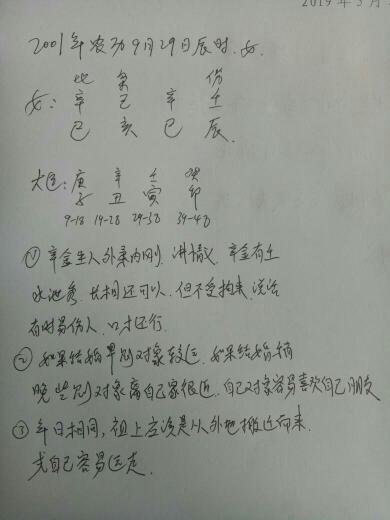 2019年3月
2001年农历9月29日辰时.女.
比 枭 伤
女: 辛 己 辛 壬
巳 亥 巳 辰.
大运: 庚 辛 壬 癸
子 丑 寅 卯
9-18 19-28 29-38 39-48
① 辛金生人外柔内刚.讲情义.辛金有土
水泄秀.长相还可以.但不受拘束.说话
有时易伤人.口才还行.
② 如果结婚早则对象较远.如果结婚稍
晚些则对象离自己家很近.自己对象容易喜欢自己朋友
③ 年日相同,祖上应该是从外地搬迁而来.
自己容易远走.